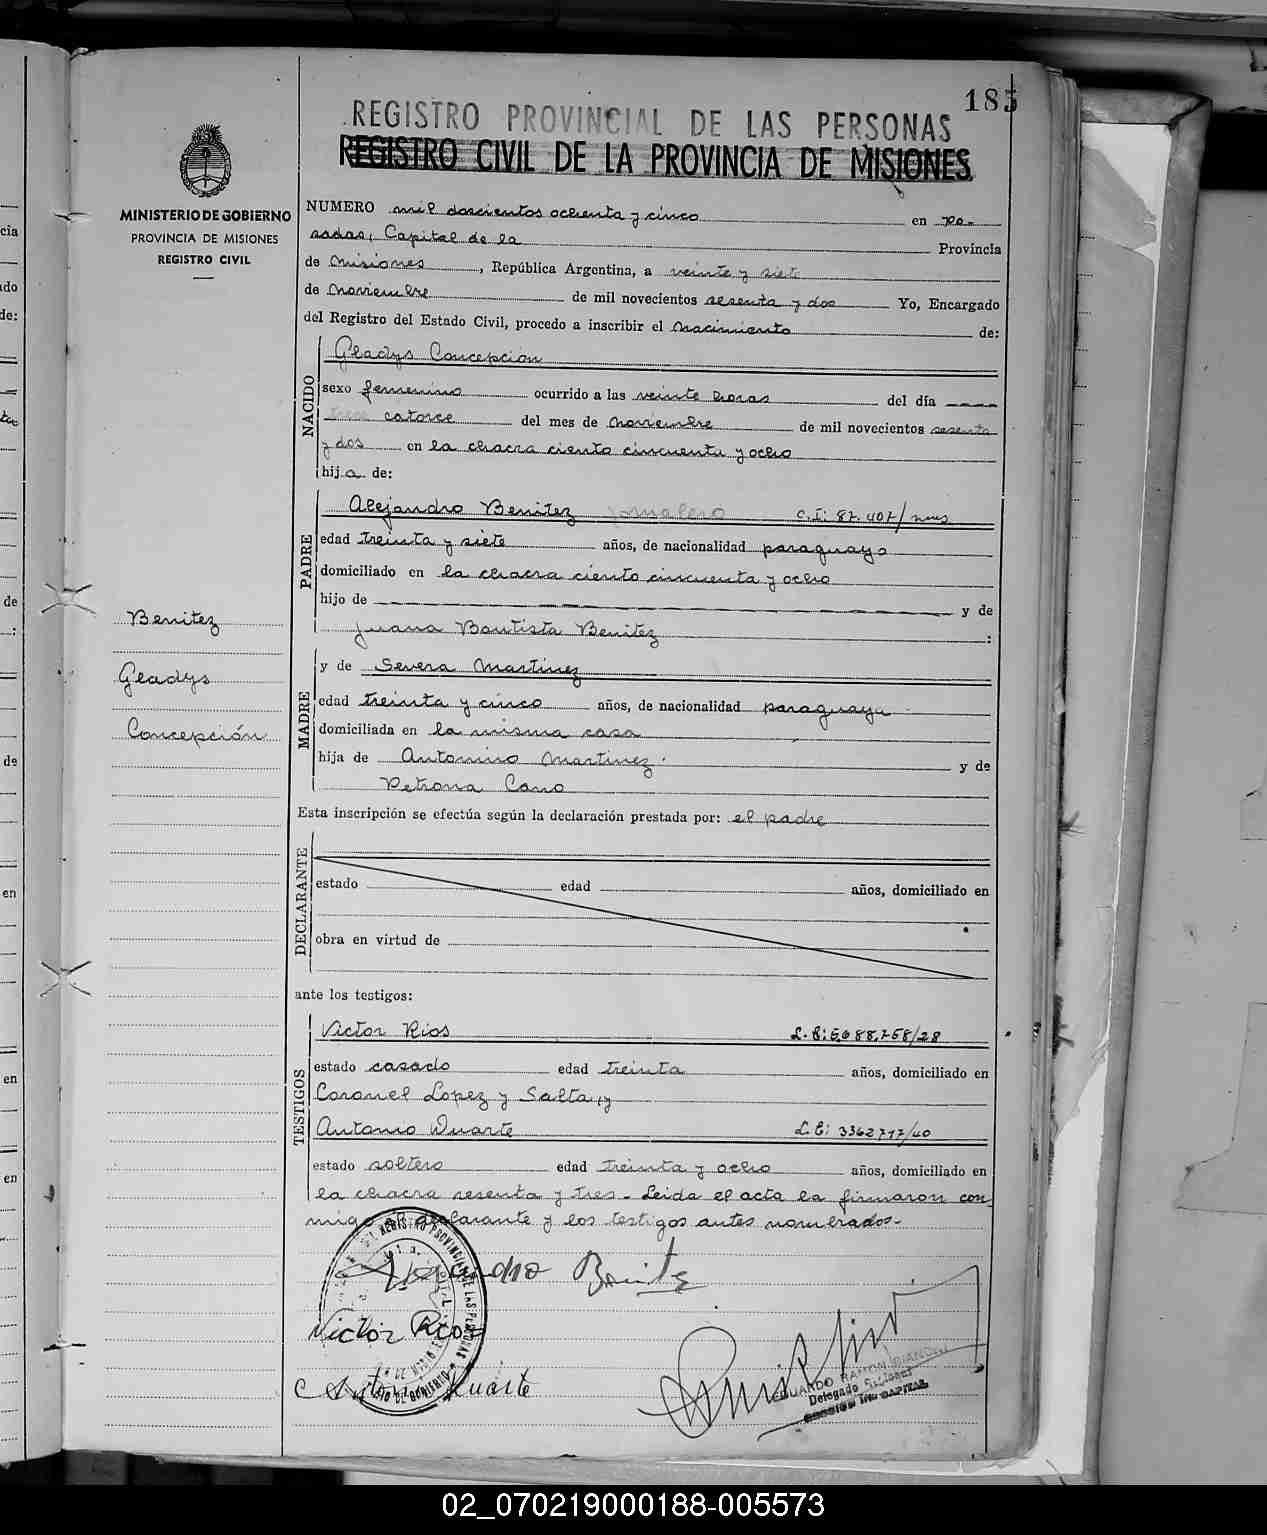 185
REGISTRO PROVINCIAL DE LAS PERSONAS
REGISTRO CIVIL DE LA PROVINCIA DE MISIONES
MINISTERIO DE GOBIERNO
PROVINCIA DE MISIONES
REGISTRO CIVIL
NUMERO mil doscientos ochenta y cinco en Po-
sadas, Capital de la Provincia
de Misiones, República Argentina, a veinte y siete
de Noviembre de mil novecientos sesenta y dos Yo, Encargado
del Registro del Estado Civil, procedo a inscribir el Nacimiento de:
NACIDO
Gladys Concepción
sexo femenino ocurrido a las veinte horas del día
trece catorce del mes de Noviembre de mil novecientos sesenta
y dos en la chacra ciento cincuenta y ocho
hija de:
PADRE
Alejandro Benitez jornalero C.I: 87.407/mnes
edad treinta y siete años, de nacionalidad paraguayo
domiciliado en la chacra ciento cincuenta y ocho
hijo de y de
Juana Bautista Benitez :
MADRE
y de Severa Martinez
edad treinta y cinco años, de nacionalidad paraguaya
domiciliada en la misma casa
hija de Antonino Martinez y de
Petrona Cano
Benitez
Gladys
Concepción
Esta inscripción se efectúa según la declaración prestada por: el padre
DECLARANTE
estado edad años, domiciliado en
obra en virtud de
ante los testigos:
TESTIGOS
Victor Rios L.E: 5.688.758/28
estado casado edad treinta años, domiciliado en
Coronel Lopez y Salta, y
Antonio Duarte L.E: 3362717/40
estado soltero edad treinta y ocho años, domiciliado en
la chacra sesenta y tres.- Leida el acta la firmaron con
migo el declarante y los testigos antes nombrados.-
Alejandro Benitez
Victor Rios
Antonio Duarte
REGISTRO PROVINCIAL DE LAS PERSONAS
EDUARDO RAMON BIANCHI
Delegado Titular
SECCION 1ra. CAPITAL
02_070219000188-005573